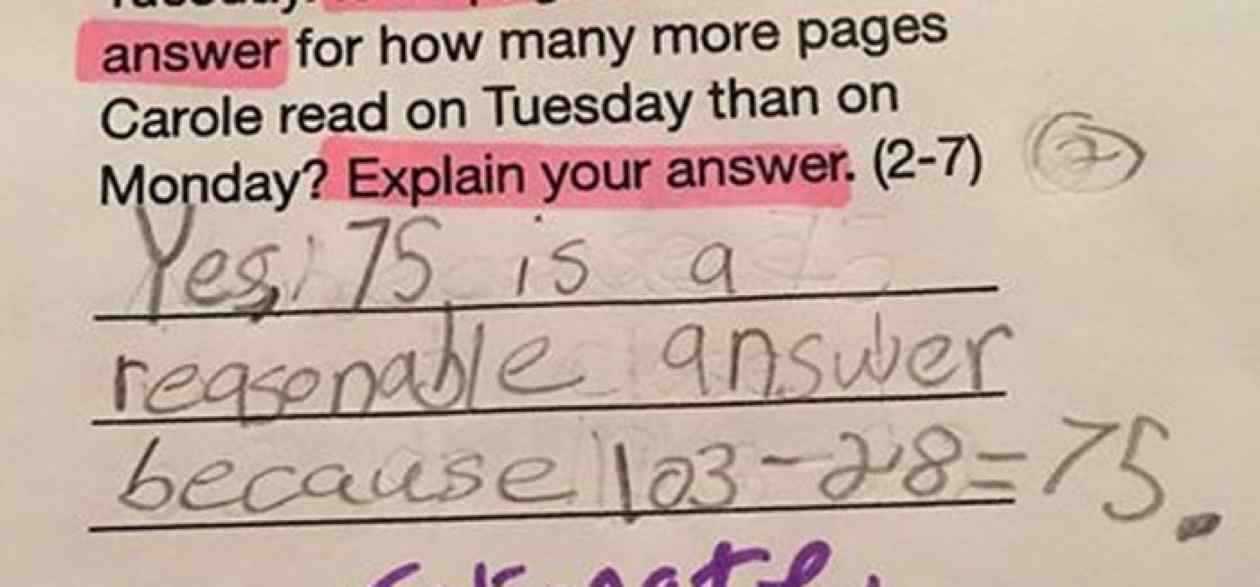 Tuesday.
answer for how many more pages
Carole read on Tuesday than on
Monday? Explain your answer. (2-7)
2
Yes, 75 is a
reasonable answer
because 103-28=75.